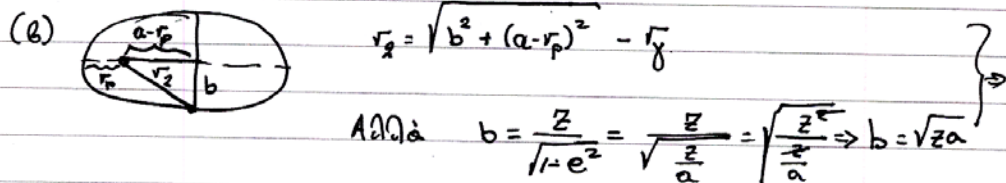 (β) a-r_p r_p r_2 b r_2 = √(b² + (a-r_p)²) - r_γ } ⇒
Αλλά b = z/√(1-e²) = z/√(z/a) = √(z²/(z/a)) ⇒ b = √(za)